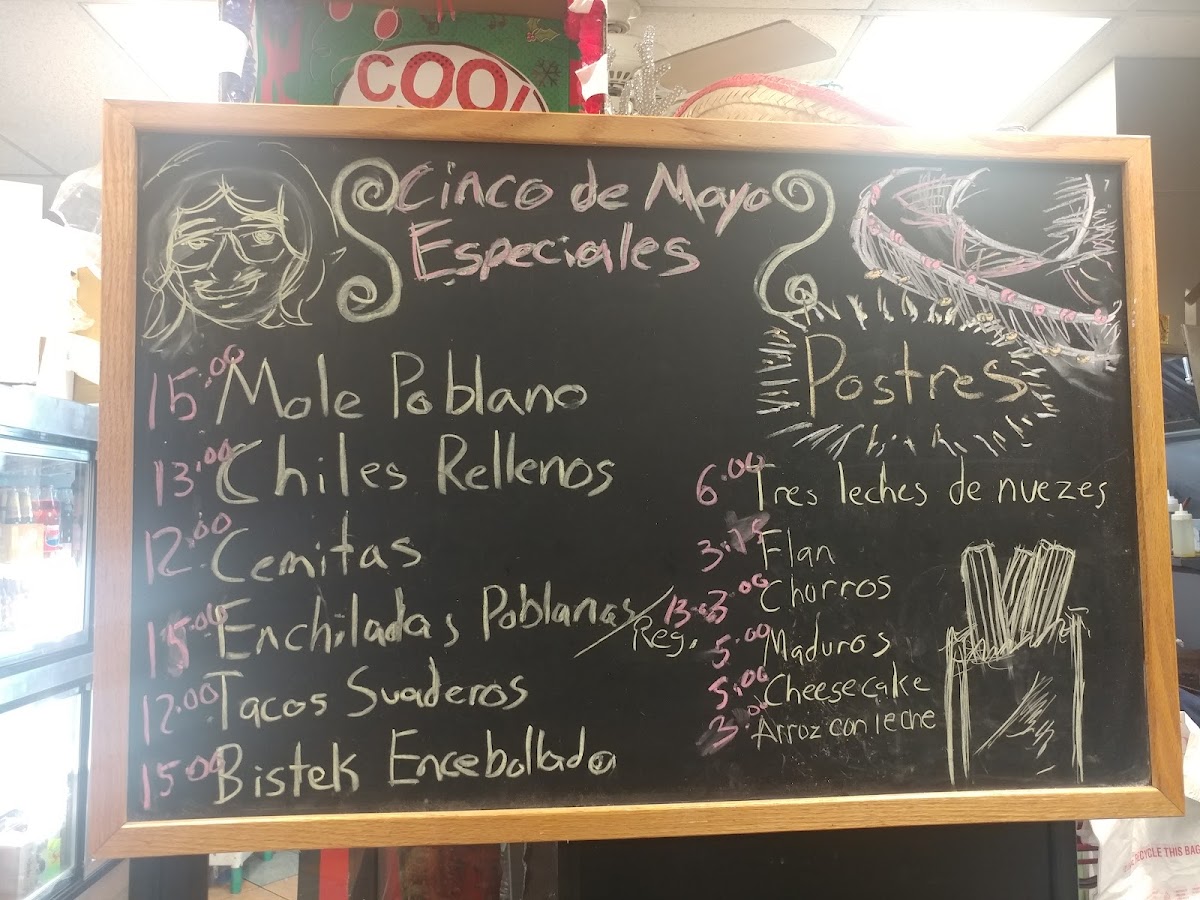 COOL
Cinco de Mayo
Especiales
15.00 Mole Poblano
13.00 Chiles Rellenos
12.00 Cemitas
15.00 Enchiladas Poblanas/Reg.
12.00 Tacos Suaderos
15.00 Bistek Encebollado
Postres
6.00 Tres leches de nuezes
3.75 Flan
3.00 Churros
5.00 Maduros
5.00 Cheesecake
Arroz con leche
RECYCLE THIS BAG